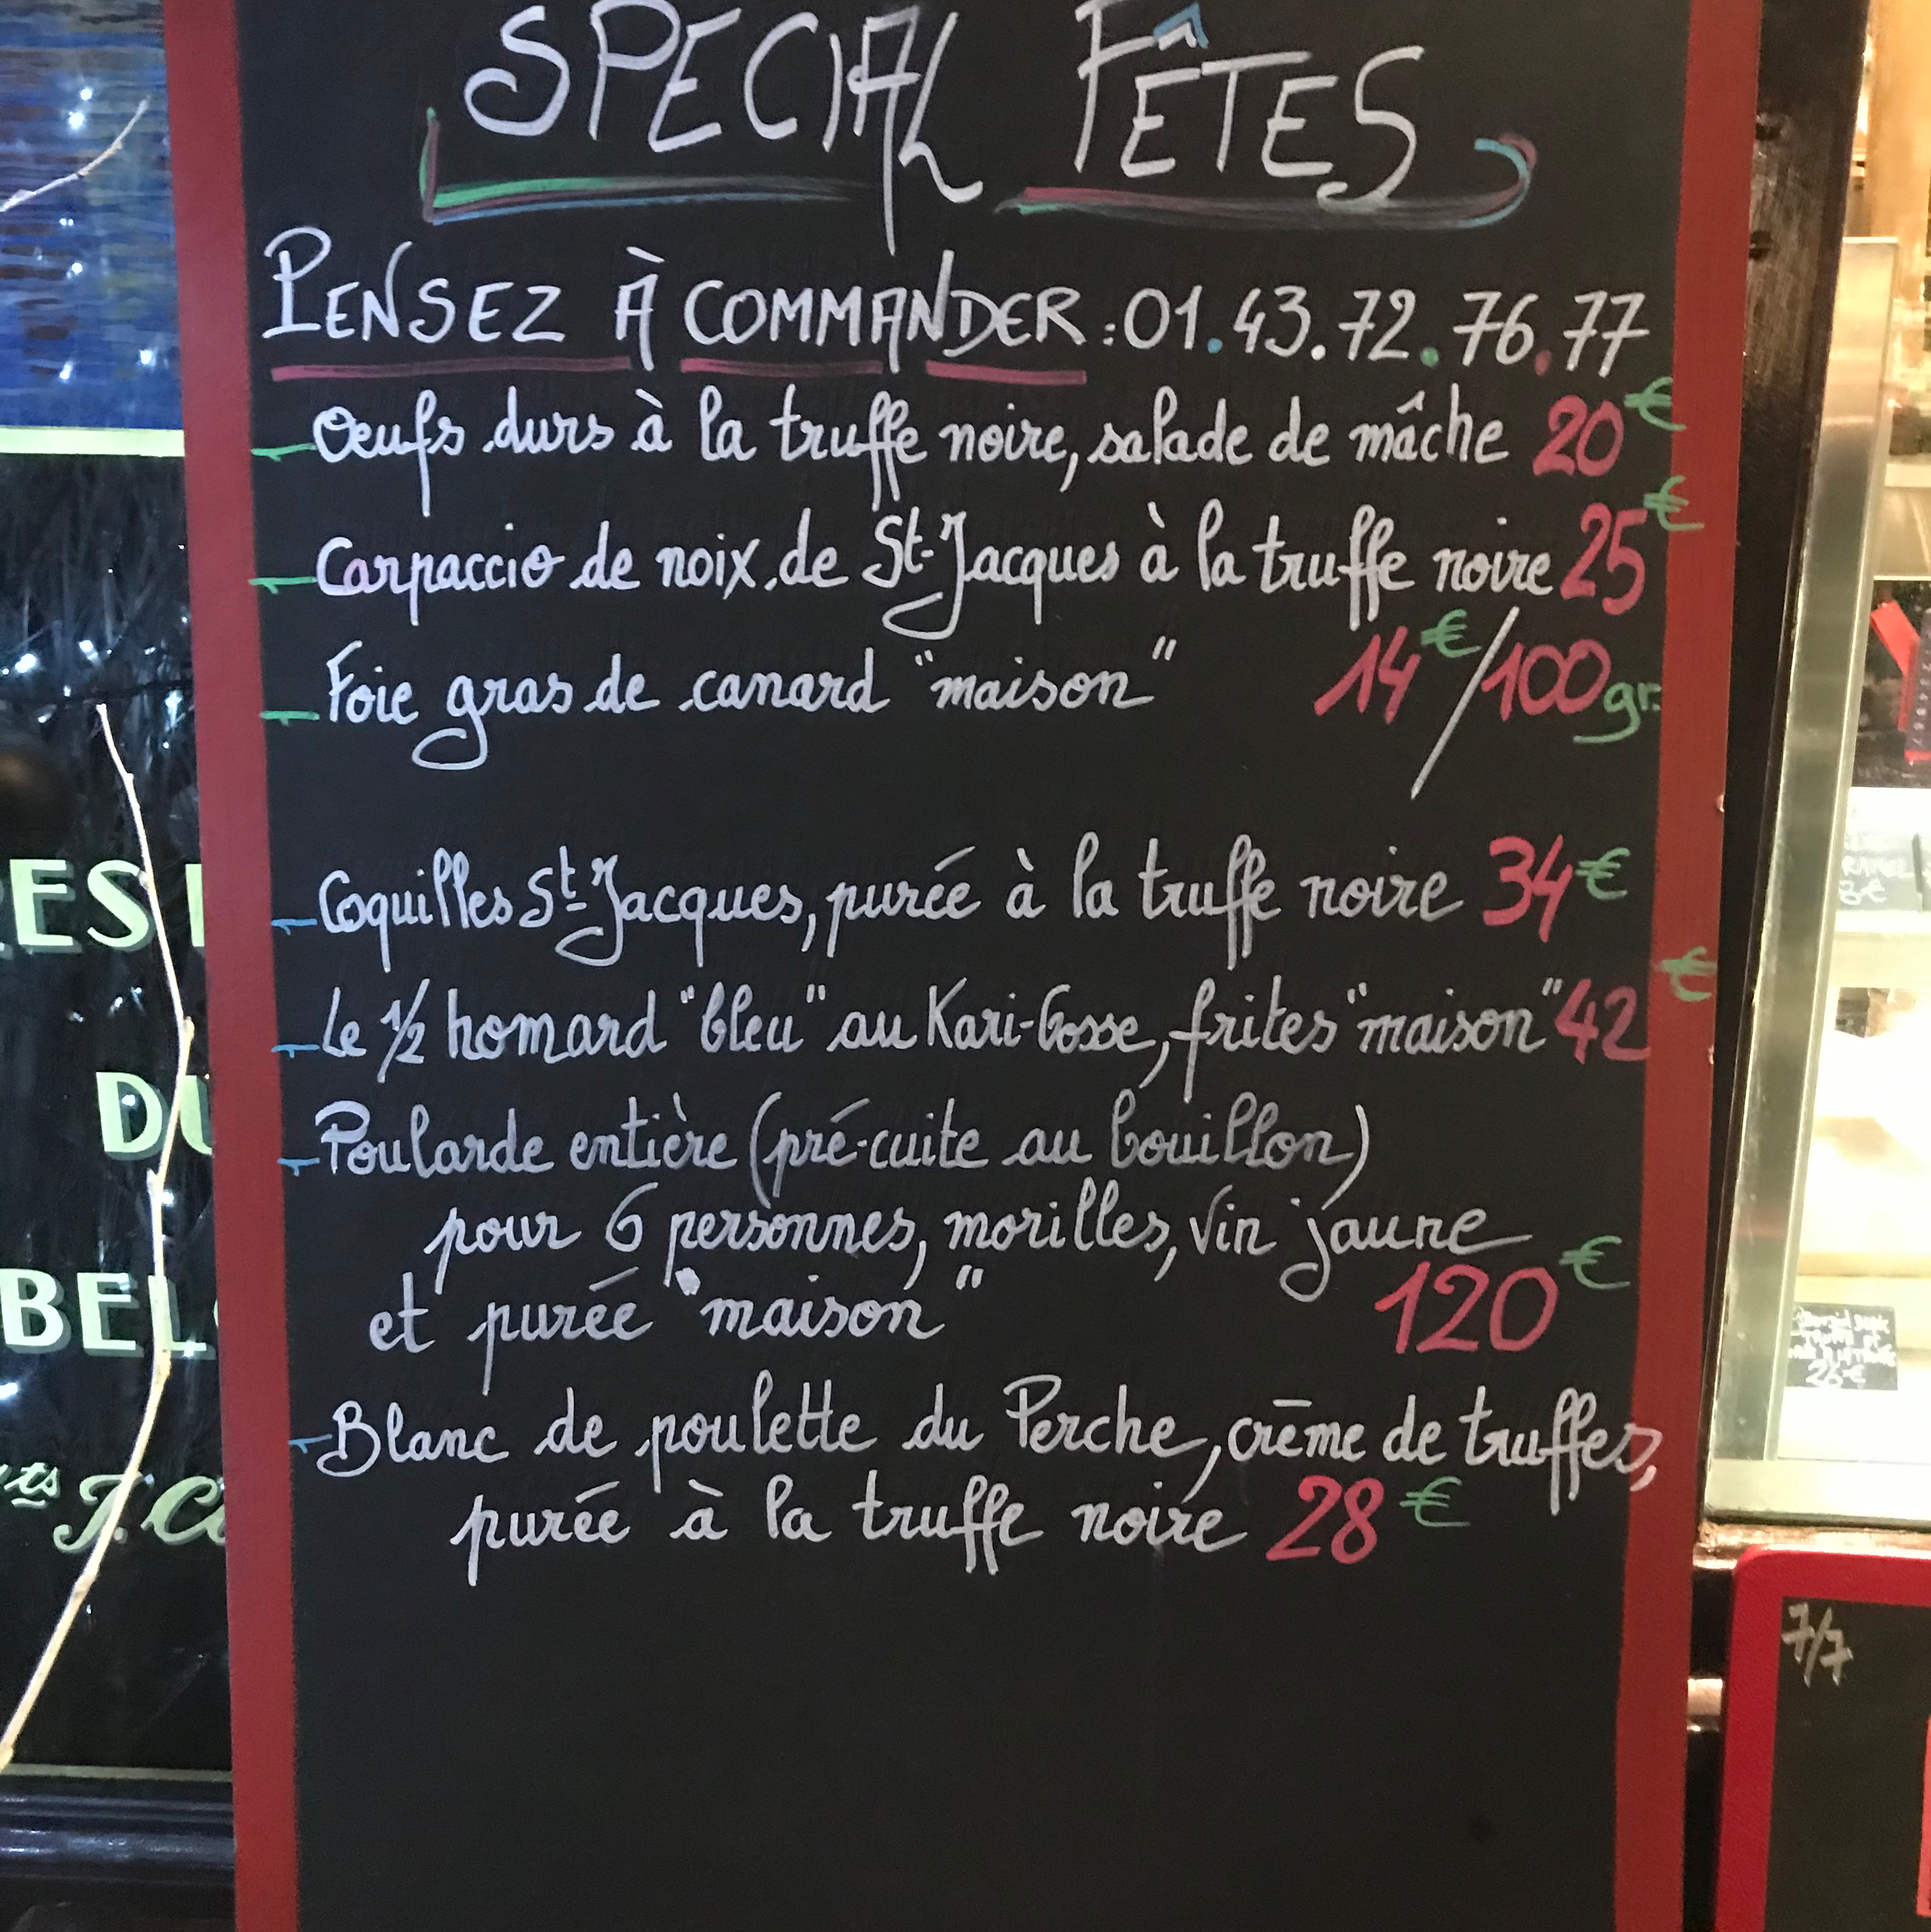 SPECIAL FÊTES
PENSEZ À COMMANDER : 01.43.72.76.77
Oeufs durs à la truffe noire, salade de mâche 20€
Carpaccio de noix de St-Jacques à la truffe noire 25€
Foie gras de canard "maison" 14€/100gr.
Coquilles St-Jacques, purée à la truffe noire 34€
Le 1/2 homard "bleu" au Kari-Gosse, frites "maison" 42€
Poularde entière (pré-cuite au bouillon)
pour 6 personnes, morilles, vin jaune
et purée "maison" 120€
Blanc de poulette du Perche, crème de truffes,
purée à la truffe noire 28€
RES
DU
BEL
7/7